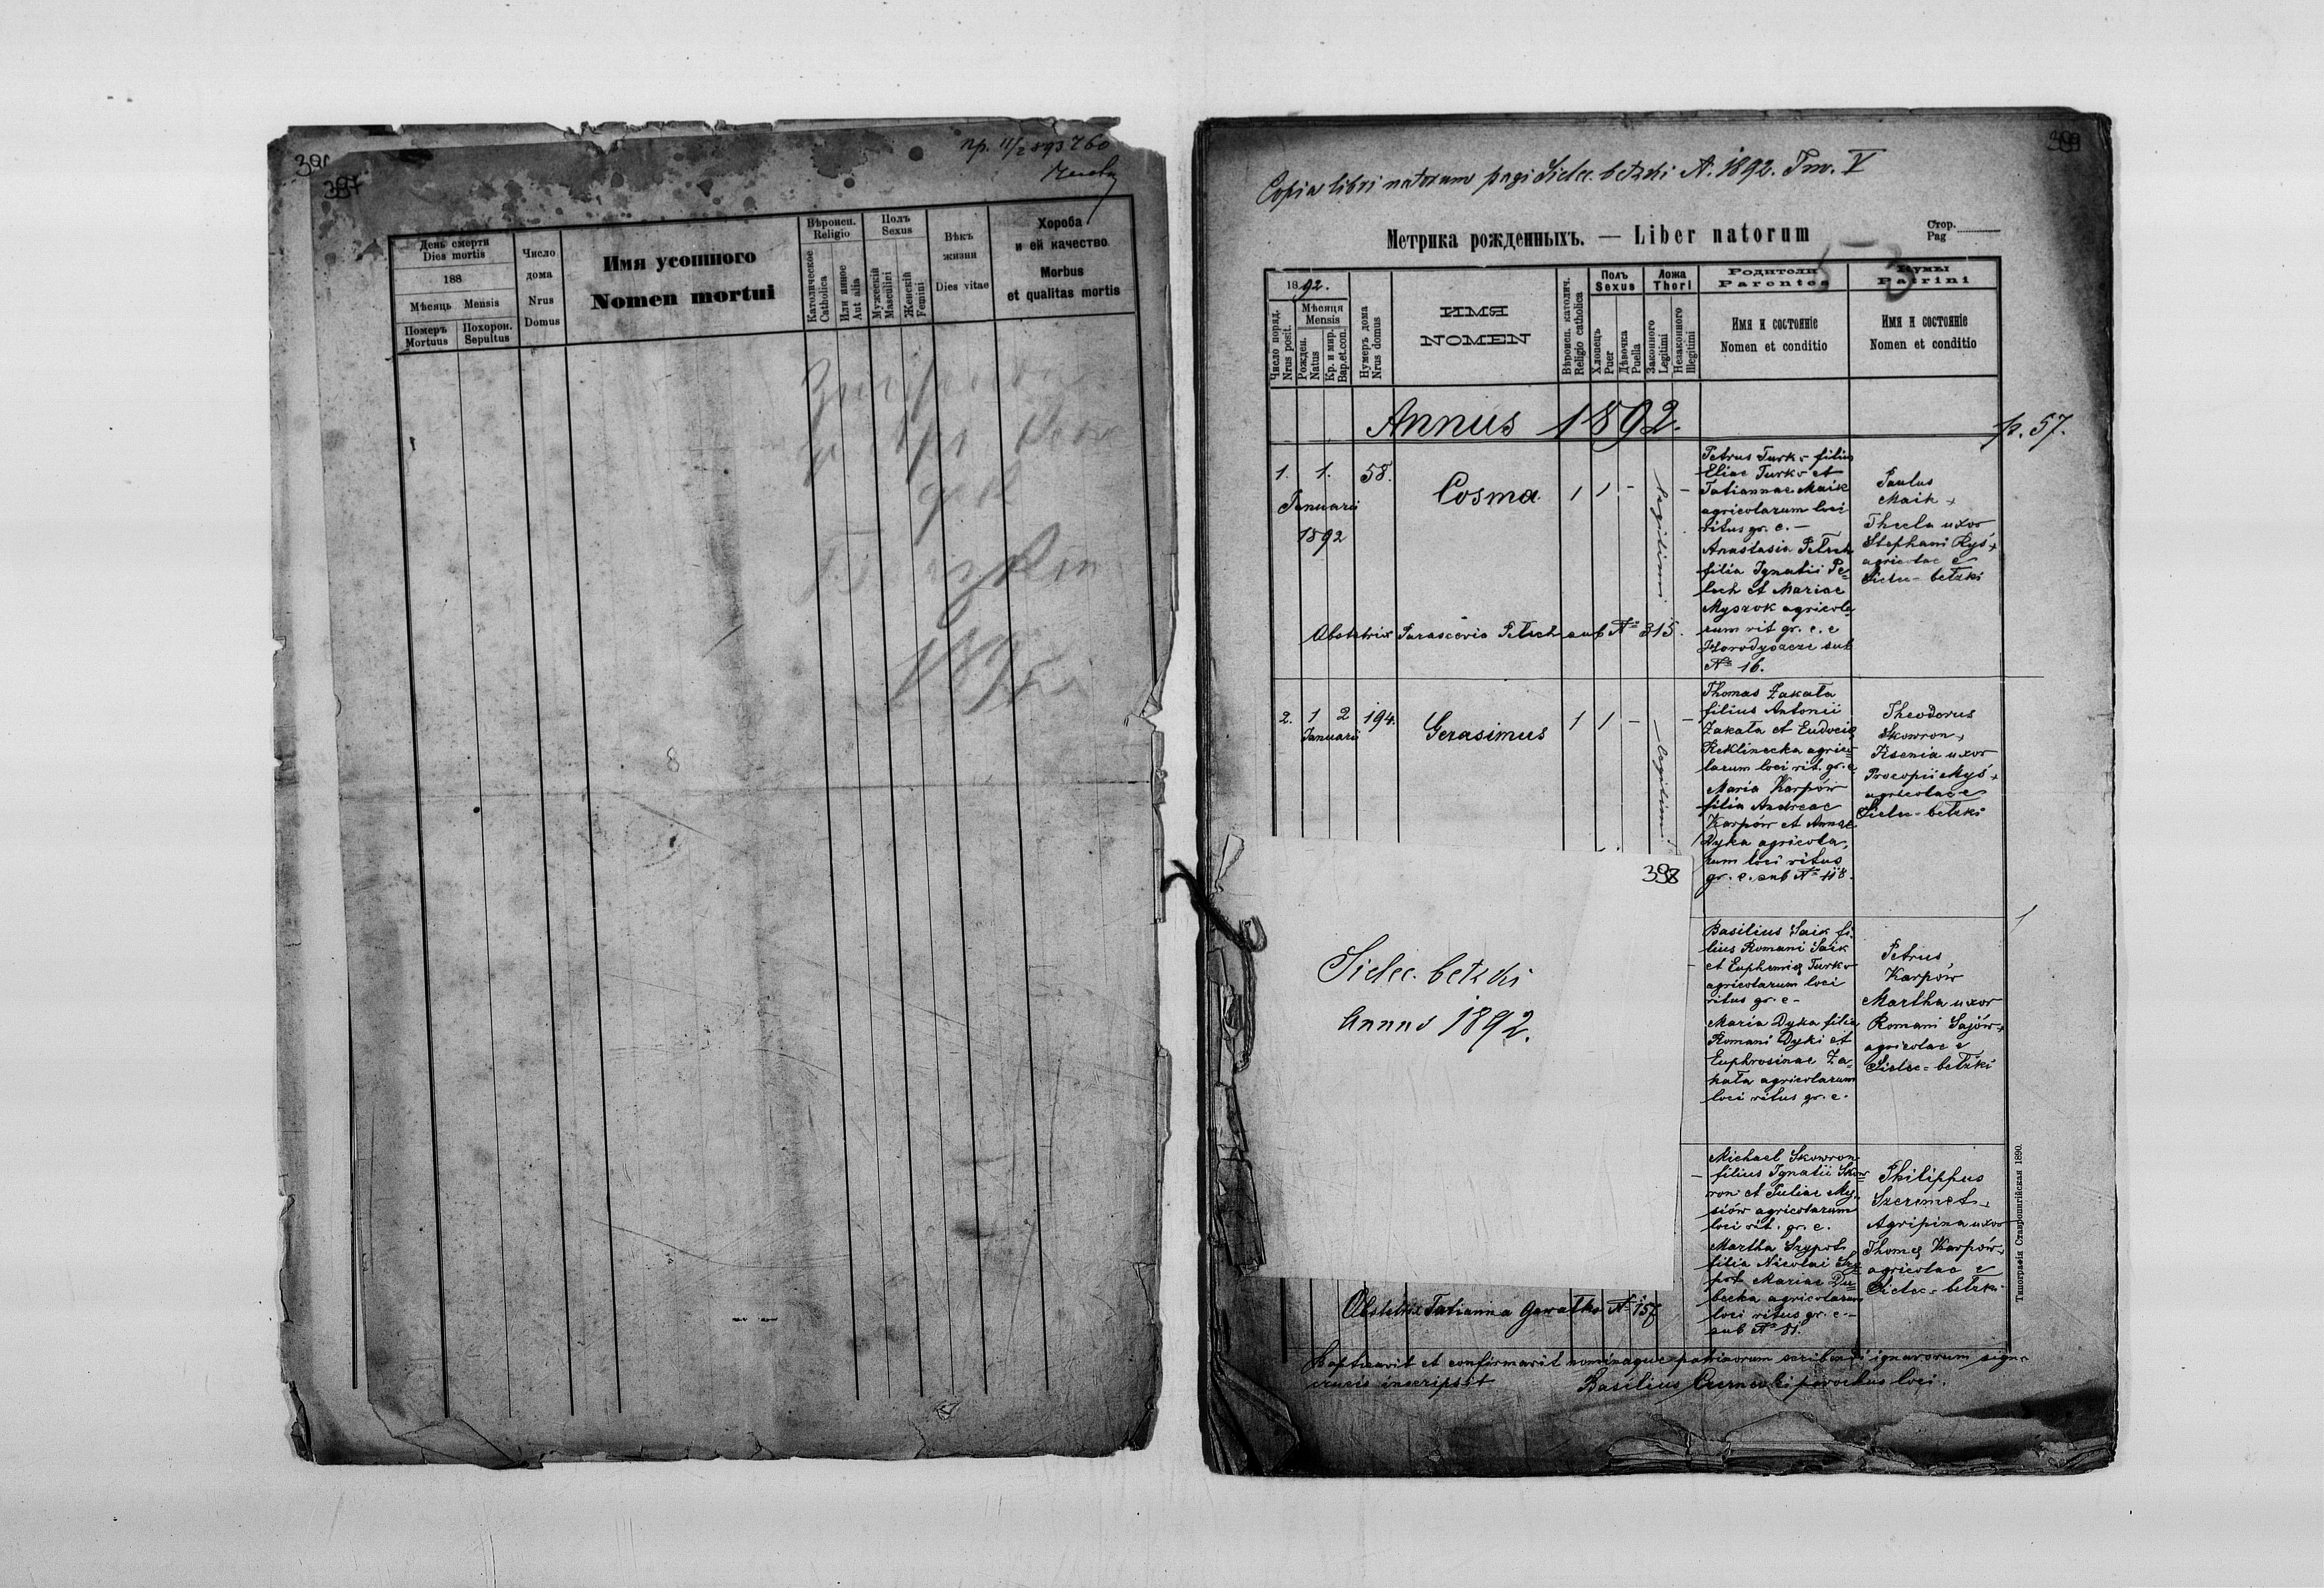 397
пр. 11/2 893 760
День смерти
Dies mortis
188
Мѣсяць Mensis
Померъ
Mortuus
Похорон.
Sepultus
Число
дома
Nrus
Domus
Имя усопшого
Nomen mortui
Вѣроисп.
Religio
Католическое
Catholica
Или инное
Aut alia
Полъ
Sexus
Мужескій
Masculini
Женскій
Femini
Вѣкъ
жизни
Dies vitae
Хороба
и ей качество
Morbus
et qualitas mortis
8
399
Copia libri natorum pagi Sielec bełzki A. 1892. Tm. V
Метрика рожденныхъ. — Liber natorum
Стор.
Pag
1892.
Число поряд.
Nrus posit.
Мѣсяця
Mensis
Рожден.
Natus
Кр. и мир.
Bap. et con.
Нумеръ дома
Nrus domus
ИМЯ
NOMEN
Вѣроисп. католич.
Religio catholica
Полъ
Sexus
Хлопецъ
Puer
Дѣвочка
Puella
Ложа
Thori
Законного
Legitimi
Незаконного
Illegitimi
Родители
Parentes
Имя и состояніе
Nomen et conditio
Кумы
Patrini
Имя и состояніе
Nomen et conditio
Annus 1892.
p. 57.
1. 1. 58. Cosma 1 1 - Legitimi -
Januarii
1892
Petrus Turko filius
Eliae Turko et
Tatiannae Maik
agricolarum loci
ritus gr. c. -
Anastasia Pełech
filia Ignatii Pe=
łech et Mariae
Myszok agricola
rum rit gr. c. e
Horodyszcze sub
No 16.
Paulus
Maik +
Thecla uxor
Stephani Ryś +
agricolae e
Sielec-bełzki
Obstetrix Parascevia Pełech sub No 315.
2. 1 2 194. Gerasimus 1 1 - Legitimi -
Januarii
Thomas Zakała
filius Antonii
Zakała et Eudociae
Reklinecka agrico=
larum loci rit. gr. c
Maria Karpów
filia Andreae
Karpów et Annae
Dyka agricola,
rum loci ritus
gr. c. sub No 118.
Theodorus
Skowron +
Ksenia uxor
Procopii Myś +
agricolae e
Sielec-bełzki
398
Sielec bełzki
Annus 1892.
Basilius Saik fi,
lius Romani Saik
et Euphemiae Turko
agricolarum loci
ritus gr. c -
Maria Dyka filia
Romani Dyki et
Euphrosinae Za=
kała agricolarum
loci ritus gr. c.
Petrus
Karpów
Martha uxor
Romani Sajów +
agricolae e
Sielec=bełzki
Michael Skowron
filius Ignatii Skow=
ron et Juliae My,
siów agricolarum
loci rit. gr. c.
Martha Szypot
filia Nicolai Szy=
pot Mariae Du=
becka agricolarum
loci ritus gr. c. -
sub No 81.
Philippus
Szeremet +
Agripina uxor
Thomae Karpów +
agricolae e
Sielec=bełzki
Obstetrix Tatianna Gawałko No 157
Baptisavit et confirmavit nominaque patrinorum scribendi ignarorum signo
crucis inscripsit Basilius Czernecki parochus loci.
Типографія Ставропигійская 1890.